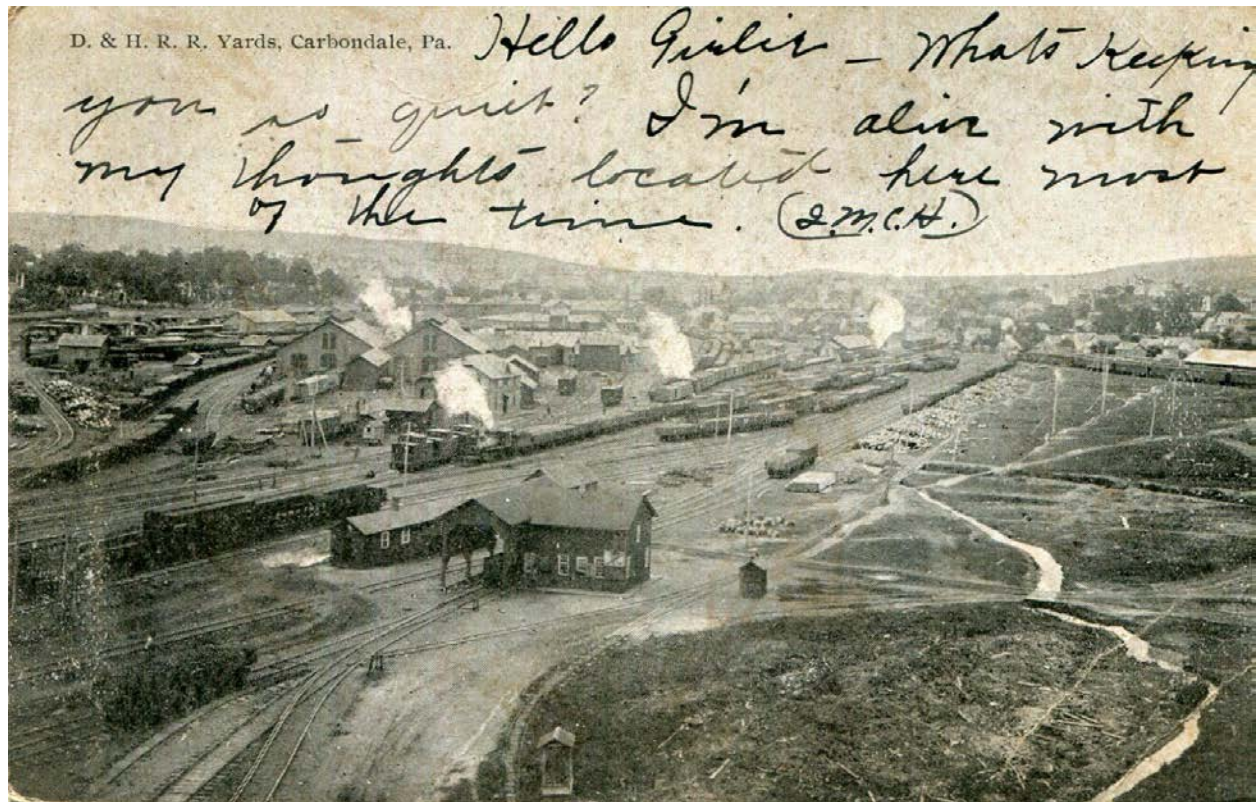 D. & H. R. R. Yards, Carbondale, Pa.
Hello Girlie – Whats Keeping
you so quiet? I'm alive with
my thoughts located here most
of the time. (I.M.C.H.)